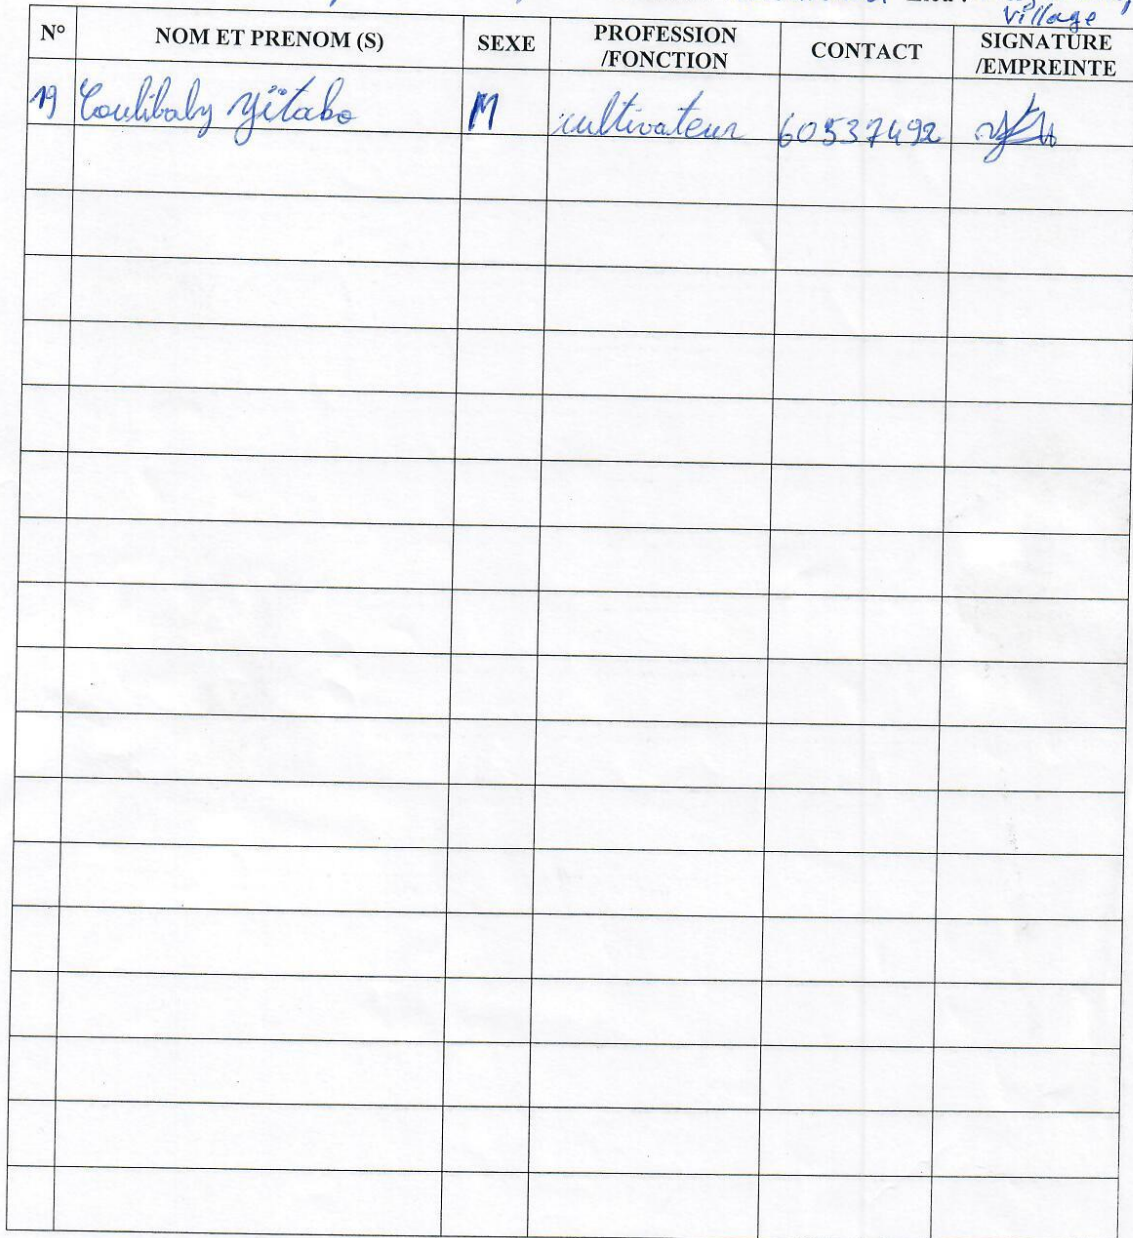 Village
N° NOM ET PRENOM (S) SEXE PROFESSION /FONCTION CONTACT SIGNATURE /EMPREINTE
19 Coulibaly Yitabo M cultivateur 60537492